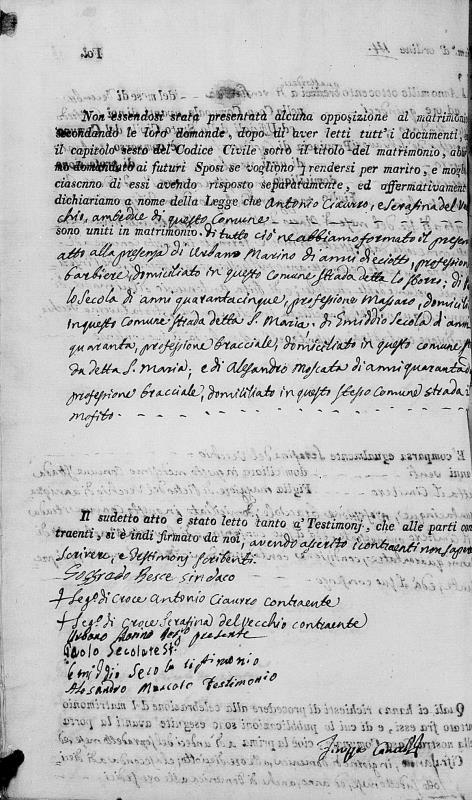 Fol.
Non essendosi stata presentata alcuna opposizione al matrimo
secondando le loro domande, dopo di aver letti tutt' i documenti,
il capitolo sesto del Codice Civile sotto il titolo del matrimonio, ab
mo domandato ai futuri Sposi se vogliono rendersi per marito, e mogli
ciascnno di essi avendo risposto separatamente, ed affermativament
dichiariamo a nome della Legge che Antonio Ciaurro, e Serafina del Vec
chio, ambedue di questo Comune -
sono uniti in matrimonio. di tutto ciò ne abbiamo formato il presen
atto alla presenza di Urbano Marino di anni dieciotto, profession
barbiere, domiciliato in questo Comune strada detta lo sborro: di
lo Secola di anni quarantacinque, professione Massaro, domicili
in questo Comune strada detta S. Maria. di Emiddio Secola d' ann
quaranta, professione bracciale, domiciliato in questo comune st
da detta S. Maria; e di Alesandro Moscata di anni quaranta
professione bracciale, domiciliato in questo stesso Comune strada
Mofito - - - - - - - - - - - -
Il sudetto atto è stato letto tanto a' Testimonj, che alle parti con
traenti, si è indi firmato da noi, avendo asserito i contraenti non sapere
scrivere, e testimonj scribenti.
Besce sindaco
+ Segº. di Croce Antonio Ciaurro contraente
+ Segº. di croce Serafina del Vecchio contraente
Urbano Marino presente
Paolo Secola test.
Emidio Secola testimonio
Alesandro Moscata Testimonio